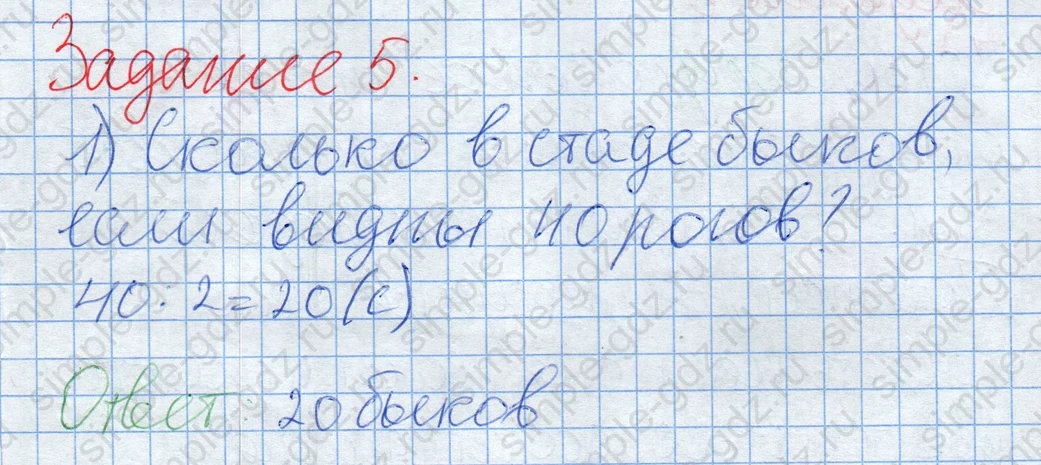 Задание 5.
1) Сколько в стаде быков,
если видны 40 рогов?
40 : 2 = 20 (с)
Ответ: 20 быков